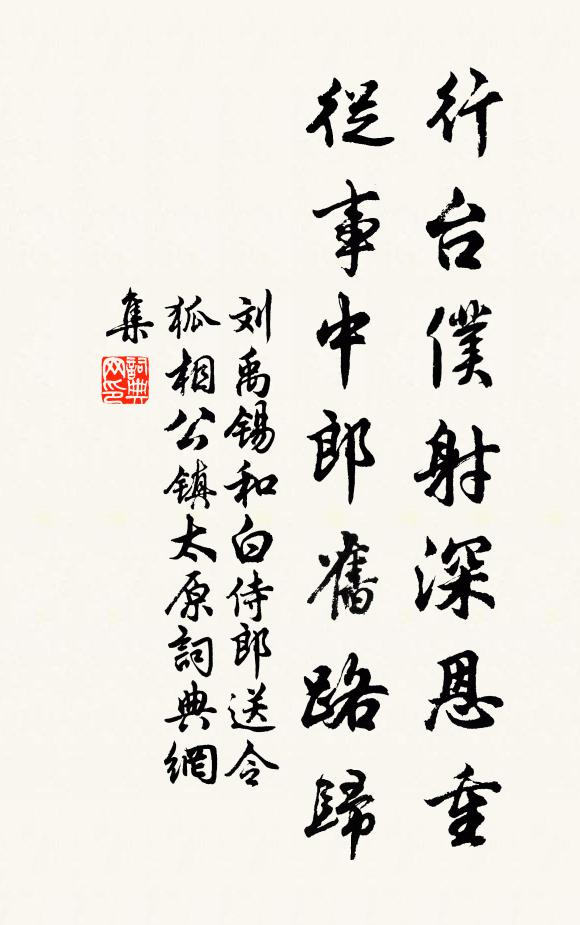 行台僕射深恩重
從事中郎舊路歸
刘禹錫和白侍郎送令
狐相公镇太原詞典網
集
詞典
网印